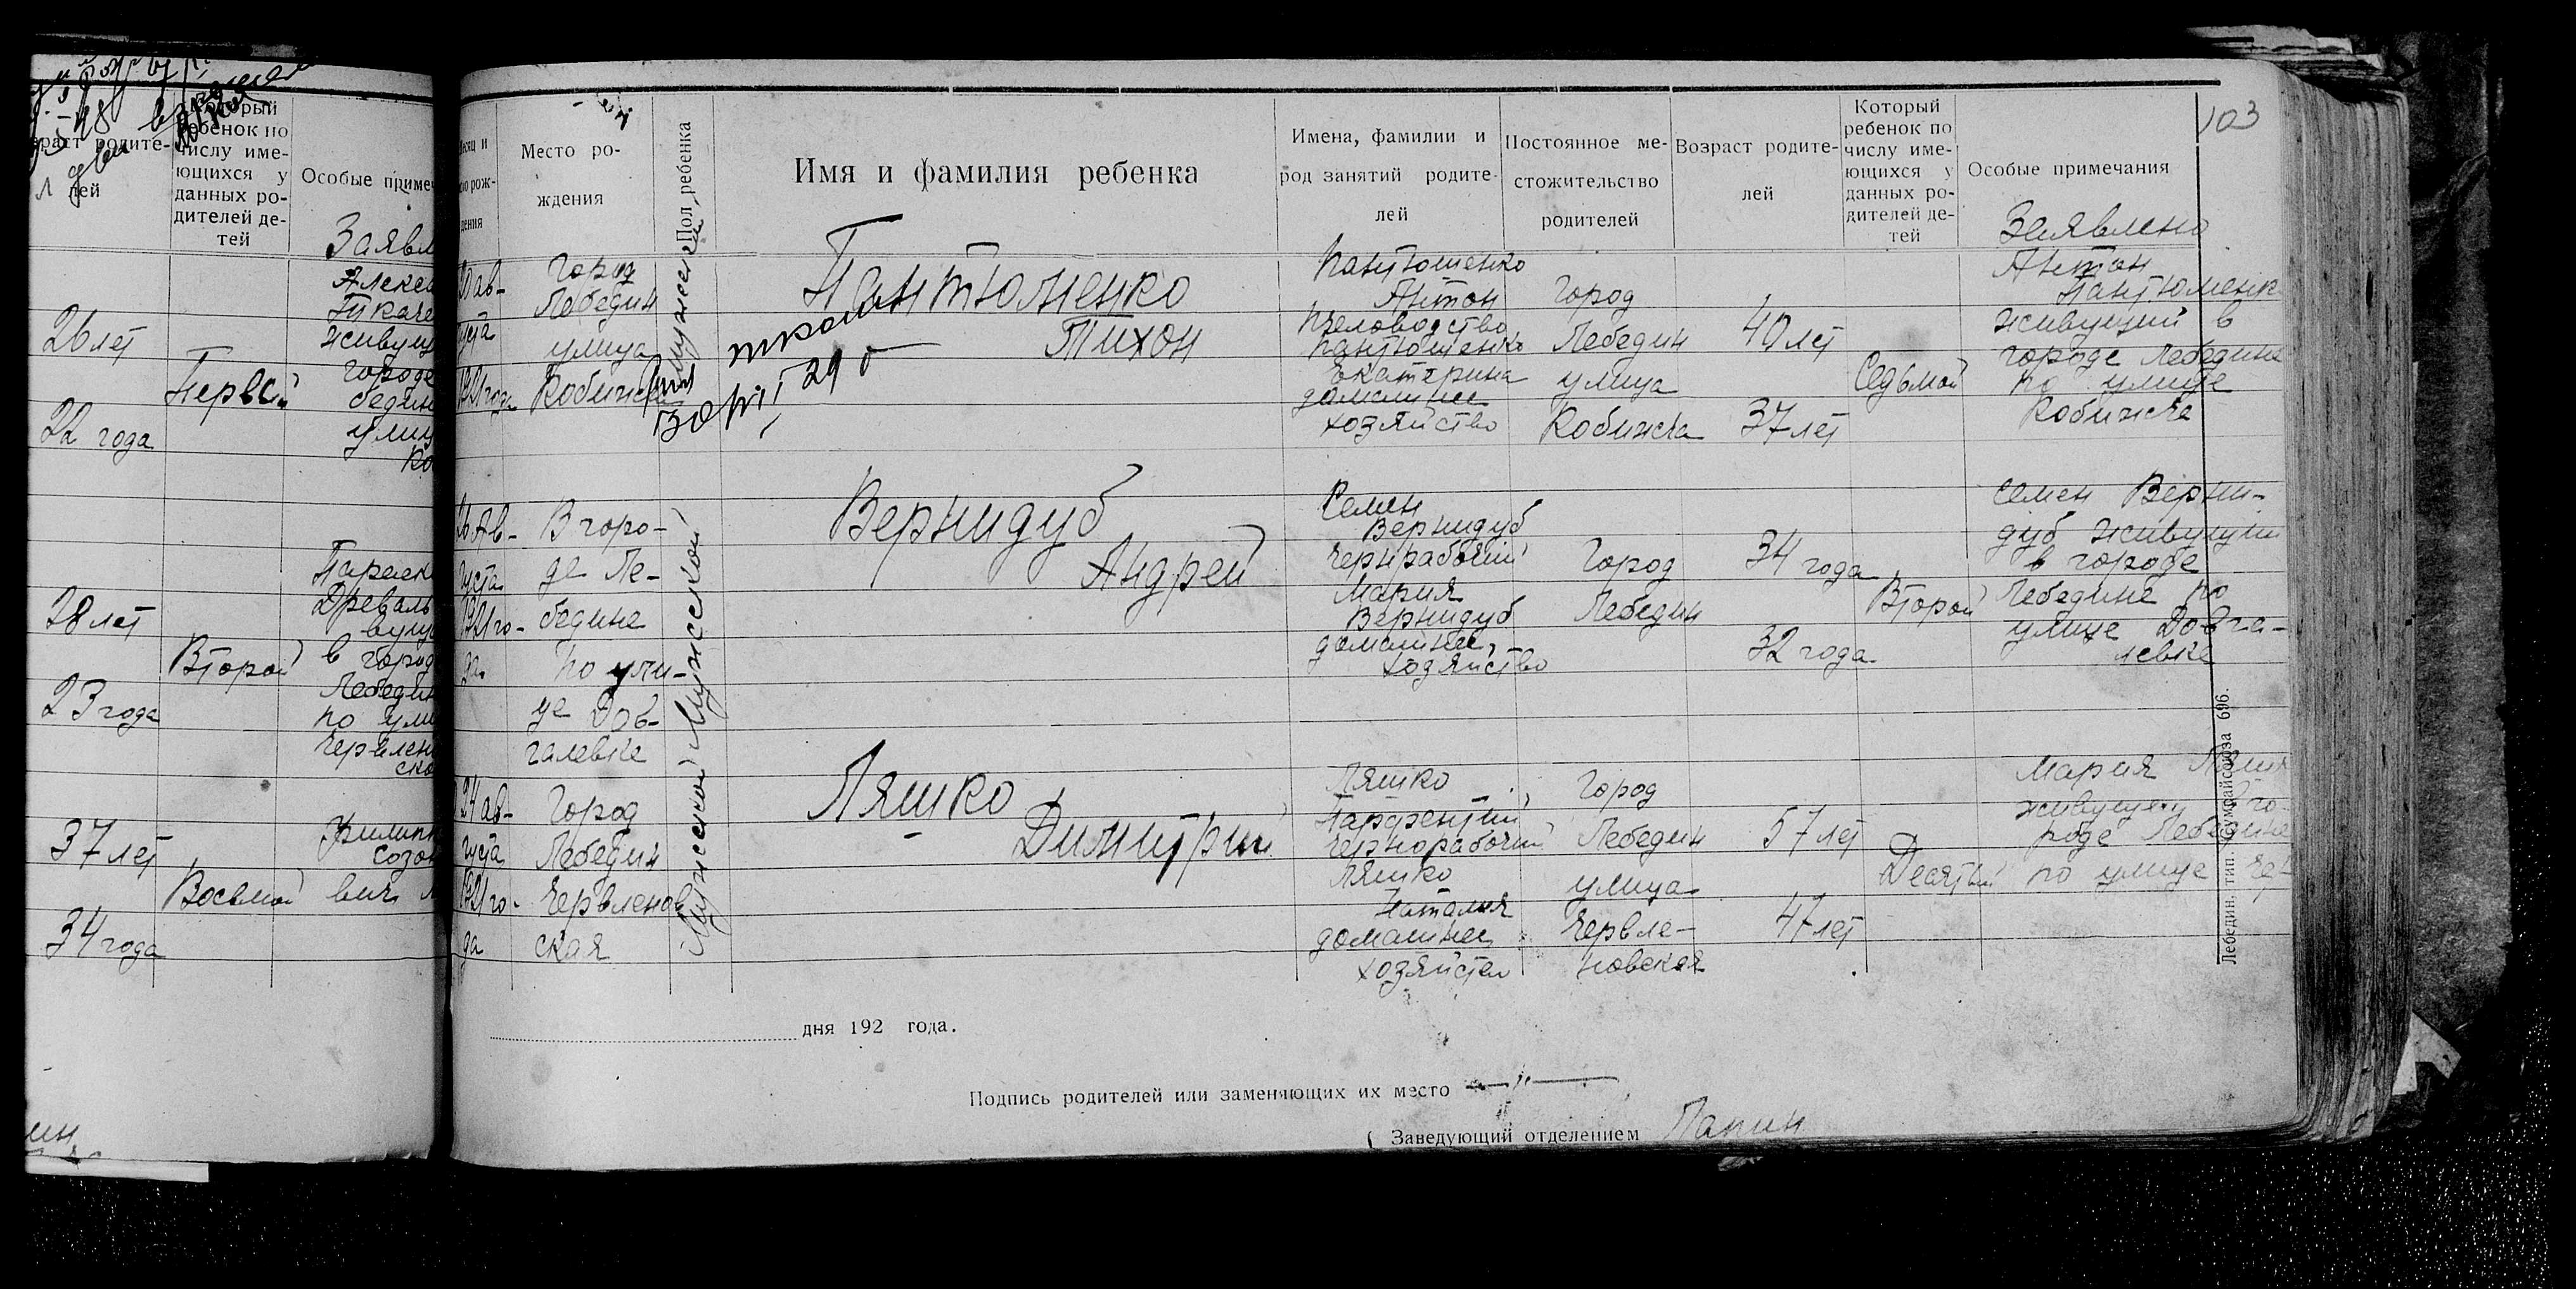 раст родите-
лей
Который
ребенок по
числу име-
ющихся у
данных ро-
дителей де-
тей
Особые примеч
Заявл
26 лет
22 года
Первый
Алекса
Ткаче
живущ
городе
бедин
улиц
28 лет
23 года
Второй
Параск
Древаль
вущ
в город
Лебедин
по ули
Червлен
ско
37 лет
34 года
Восьмой
Филипп
Созон
вич
103
Место ро-
ждения
Пол ребенка
Имя и фамилия ребенка
Имена, фамилии и
род занятий родите-
лей
Постоянное ме-
стожительство
родителей
Возраст родите-
лей
Который
ребенок по
числу име-
ющихся у
данных ро-
дителей де-
тей
Особые примечания
Заявлено
20 ав-
густа
1921 года
Город
Лебедин
улица
Кобижча
Мужской
Пантюшенко
Тихон
Пантюшенко
Антон
пчеловодство
Пантюшенко
Екатерина
домашнее
хозяйство
Город
Лебедин
улица
Кобижча
40 лет
37 лет
Седьмой
Антон
Пантюшенк
живущий в
городе Лебедине
по улице
Кобижче
26 Ав-
густа
1921 го-
да
В горо-
де Ле-
бедине
по ули-
це Дов-
галевке
Мужской
Вернидуб
Андрей
Семен
Вернидуб
чернрабочий
Мария
Вернидуб
домашнее
хозяйство
Город
Лебедин
34 года
32 года
Второй
Семен Верни-
дуб живущий
в городе
Лебедине по
улице Довга-
левке
24 ав-
густа
1921 го-
да
Город
Лебедин
Червленов
ская
Мужской
Ляшко
Димитрий
Ляшко
Парфентий
чернорабочий
Ляшко
Наталия
домашнее
хозяйство
Город
Лебедин
улица
Червле-
новская
57 лет
47 лет
Десятый
Мария
живущая в го-
роде Лебедине
по улице Чер-
дня 192 года.
Подпись родителей или заменяющих их место
Заведующий отделением Лапин
Лебедин. тип. Сумрайсоюза 696.